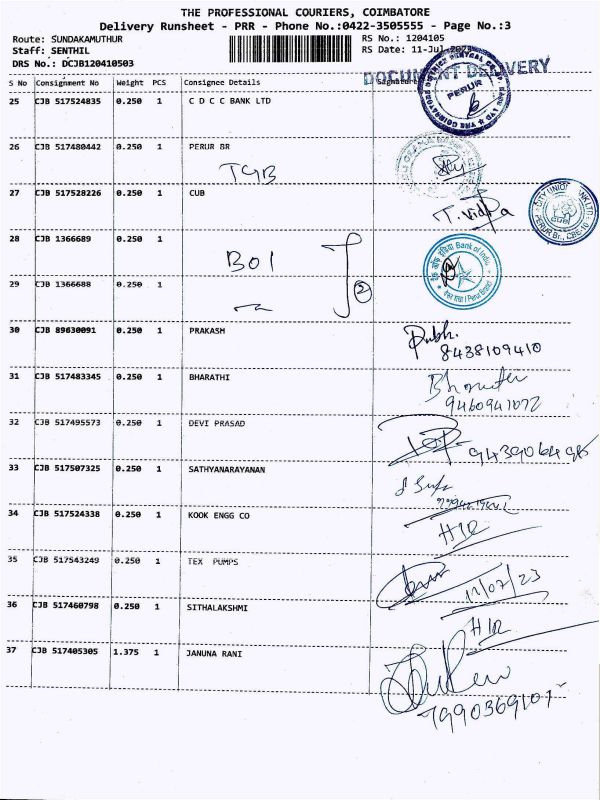 THE PROFESSIONAL COURIERS, COIMBATORE
Delivery Runsheet - PRR - Phone No.:0422-3505555 - Page No.:3
Route: SUNDAKAMUTHUR RS No.: 1204105
Staff: SENTHIL RS Date: 11-Jul-2023
DRS No.: DCJB120410503
DOCUMENT DELIVERY
S No Consignment No Weight PCS Consignee Details Signature
PERUR
25 CJB 517524835 0.250 1 C D C C BANK LTD
26 CJB 517480442 0.250 1 PERUR BR
TGB
27 CJB 517528226 0.250 1 CUB
T. Vidya
CITY UNION BANK LTD.
CUB
PERUR Br., CBE-10
28 CJB 1366689 0.250 1
BOI
Bank of India
29 CJB 1366688 0.250 1
2
30 CJB 89630091 0.250 1 PRAKASH
8438109410
31 CJB 517483345 0.250 1 BHARATHI
9460941072
32 CJB 517495573 0.250 1 DEVI PRASAD
33 CJB 517507325 0.250 1 SATHYANARAYANAN
34 CJB 517524338 0.250 1 KOOK ENGG CO
35 CJB 517543249 0.250 1 TEX PUMPS
11/07/23
36 CJB 517460798 0.250 1 SITHALAKSHMI
37 CJB 517405305 1.375 1 JANUNA RANI
7990369107